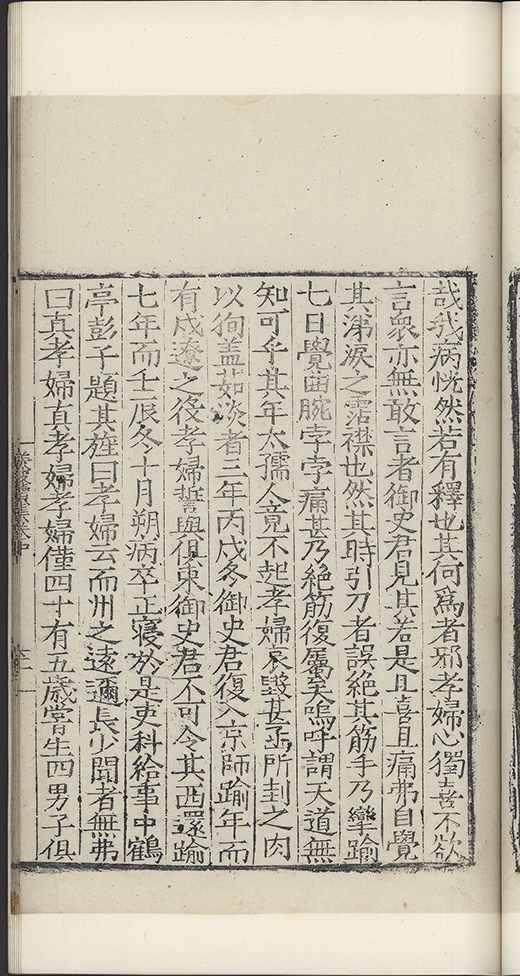 哉我病恍然若有釋也其何為者邪孝婦心獨喜不欲
言衆亦無敢言者御史君見其若是且喜且痛弗自覺
其涕淚之霑襟也然其時引刀者誤絶其筋手乃攣踰
七日覺曲腕孛孛痛甚乃絶筋復屬矣嗚呼謂天道無
知可乎其年太孺人竟不起孝婦哀毀甚函所封之肉
以狥盖茹淡者三年丙戌冬御史君復入京師踰年而
有戍遼之役孝婦誓與俱東御史君不可令其西還踰
七年而壬辰冬十月朔病卒正寢於是吏科給事中鶴
亭彭子題其旌曰孝婦云而州之遠邇長少聞者無弗
曰真孝婦真孝婦孝婦僅四十有五歲嘗生四男子俱